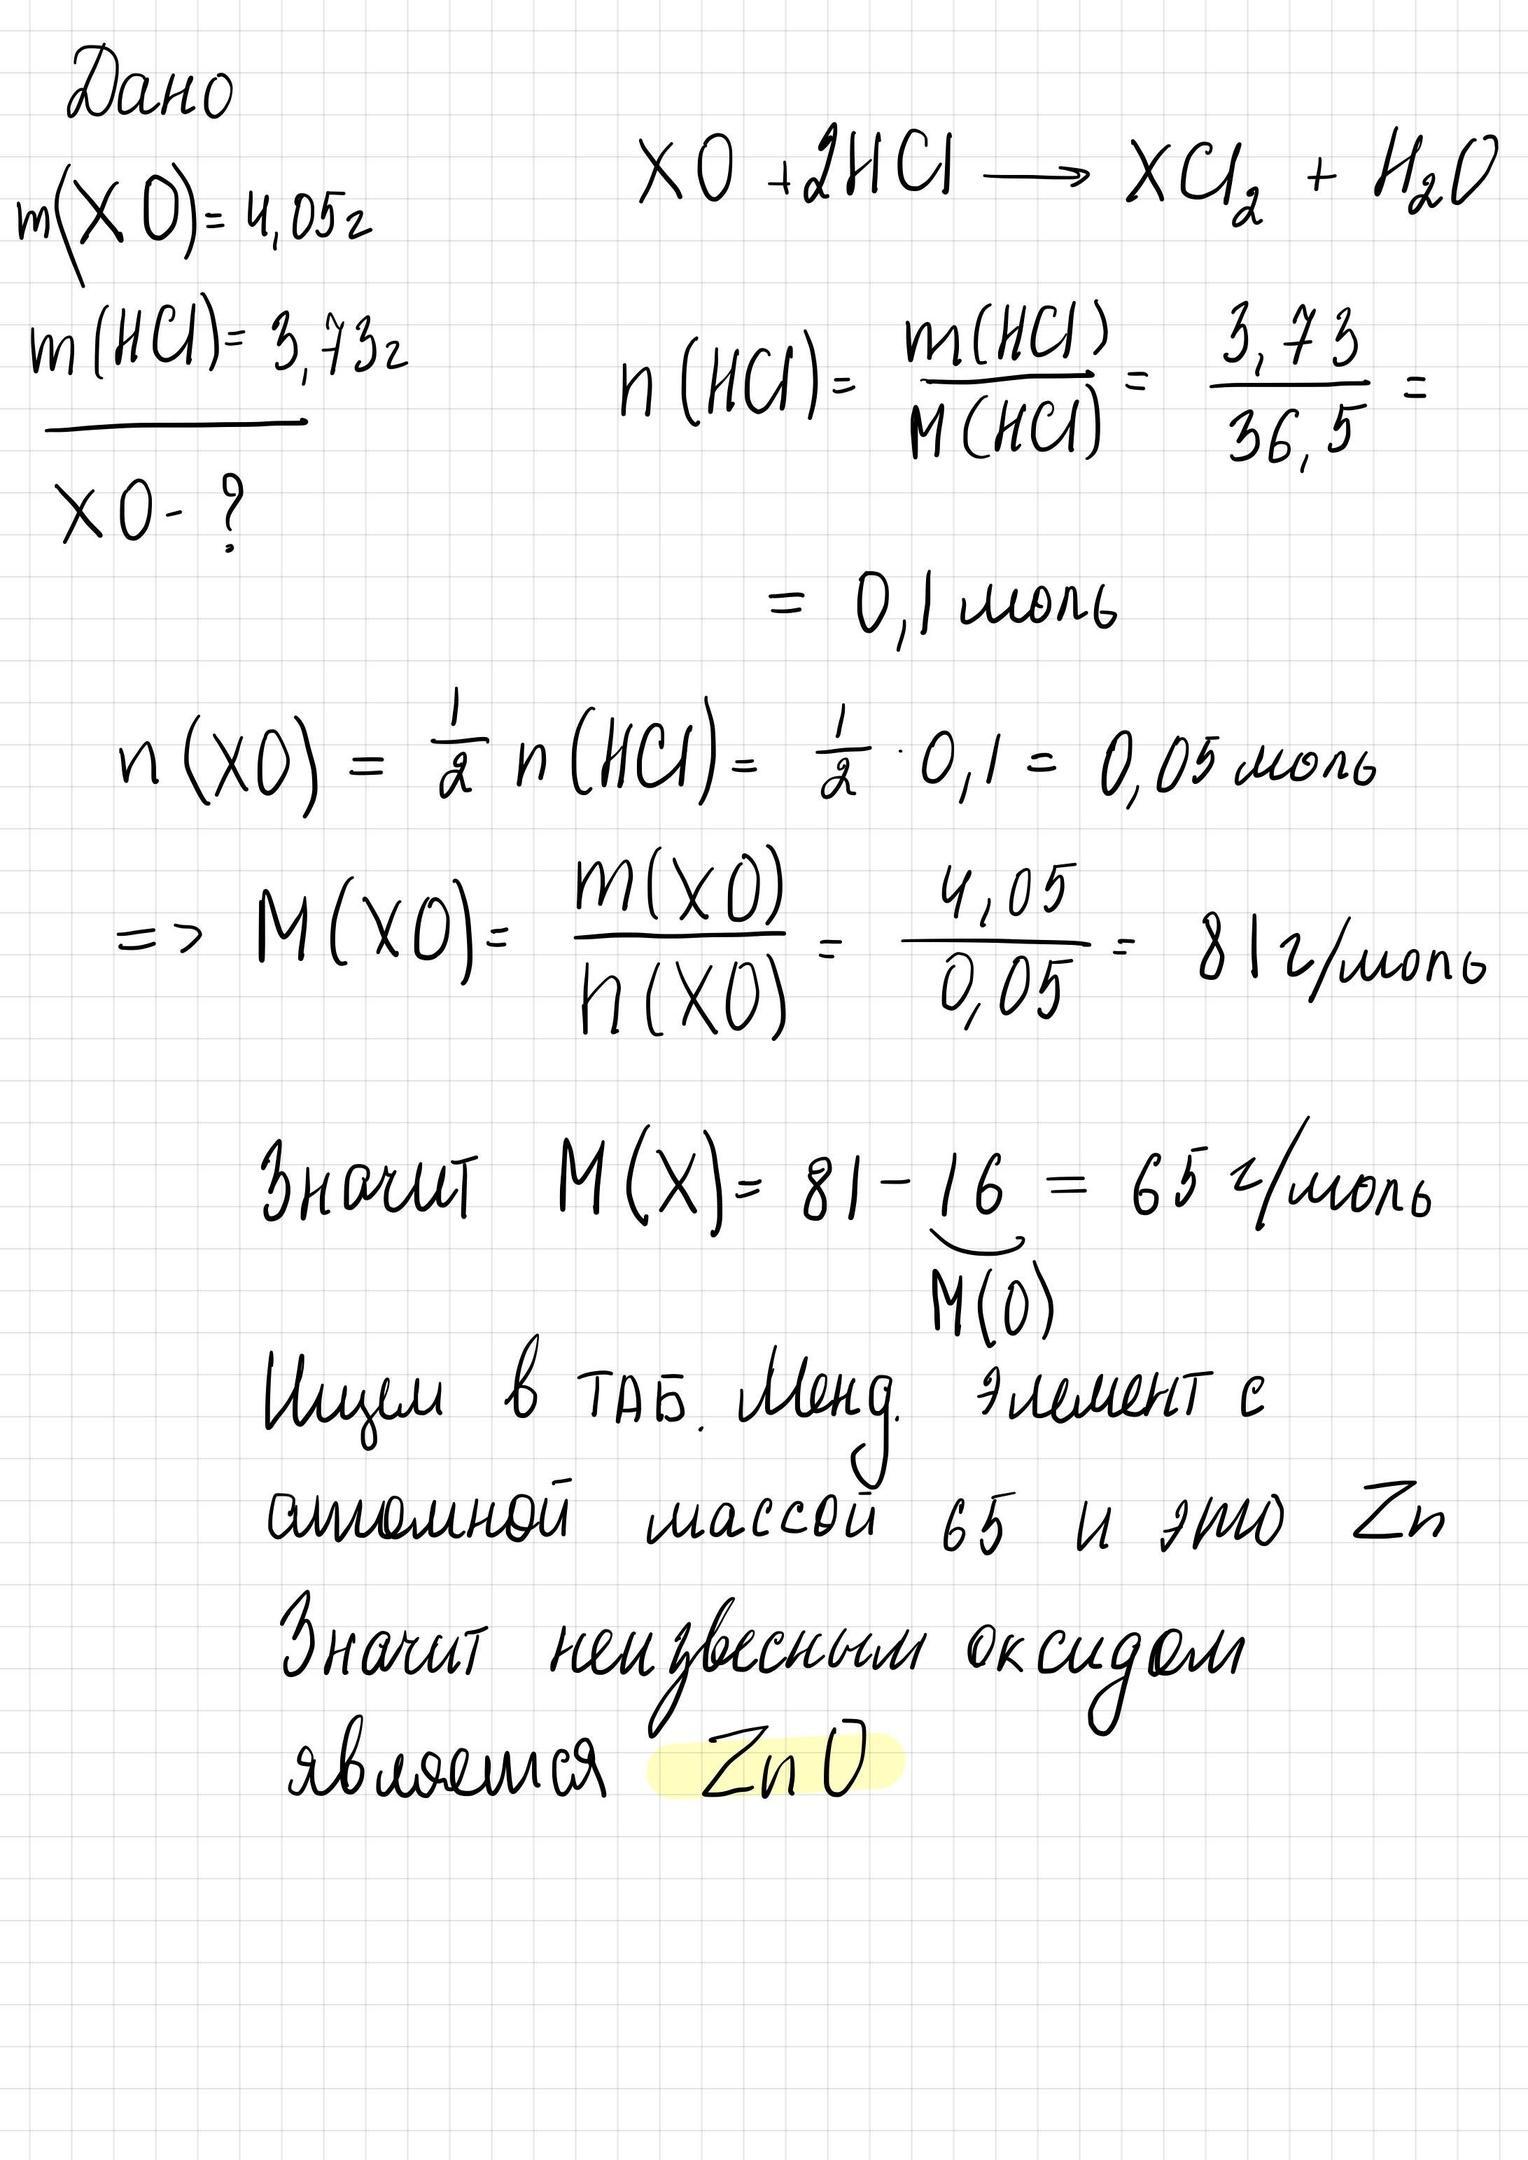 Дано
XO + 2HCl ⟶ XCl₂ + H₂O
m(XO) = 4,05г
m(HCl) = 3,73г
n(HCl) = m(HCl)/M(HCl) = 3,73/36,5 =
XO - ?
= 0,1 моль
n(XO) = 1/2 n(HCl) = 1/2 · 0,1 = 0,05 моль
=> M(XO) = m(XO)/n(XO) = 4,05/0,05 = 81 г/моль
Значит M(X) = 81 - 16 = 65 г/моль
M(O)
Ищем в ТАБ. Менд. элемент с
атомной массой 65 и это Zn
Значит неизвесным оксидом
является ZnO